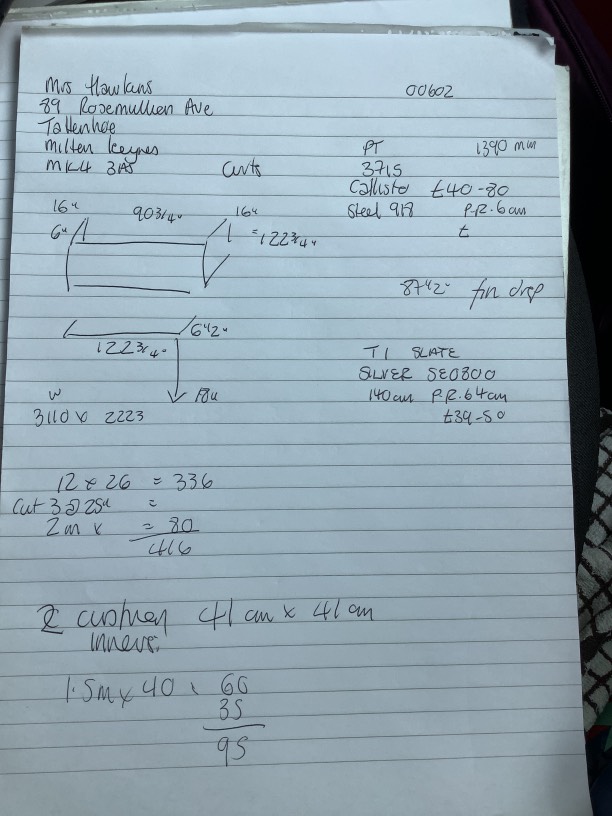 Mrs Hawkins 00602
89 Rosemullion Ave
Tattenhoe
Milten Keynes PT 1390 mm
MK4 3AS Curts 3715
Callisto £40-80
Steel 918 P.R. 6cm
£
16" 90 3/4" 16"
6" = 122 3/4"
87 1/2" fin drop
6 1/2"
122 3/4"
T1 SLATE
SILVER SE0800
18"
140cm P.R. 64cm
£39-50
W
3110 x 2223
12 x 26 = 336
Cut 3 @ 25" =
2m x = 80
416
2 cushion 41 cm x 41 cm
inners.
1.5m x 40 60
35
95